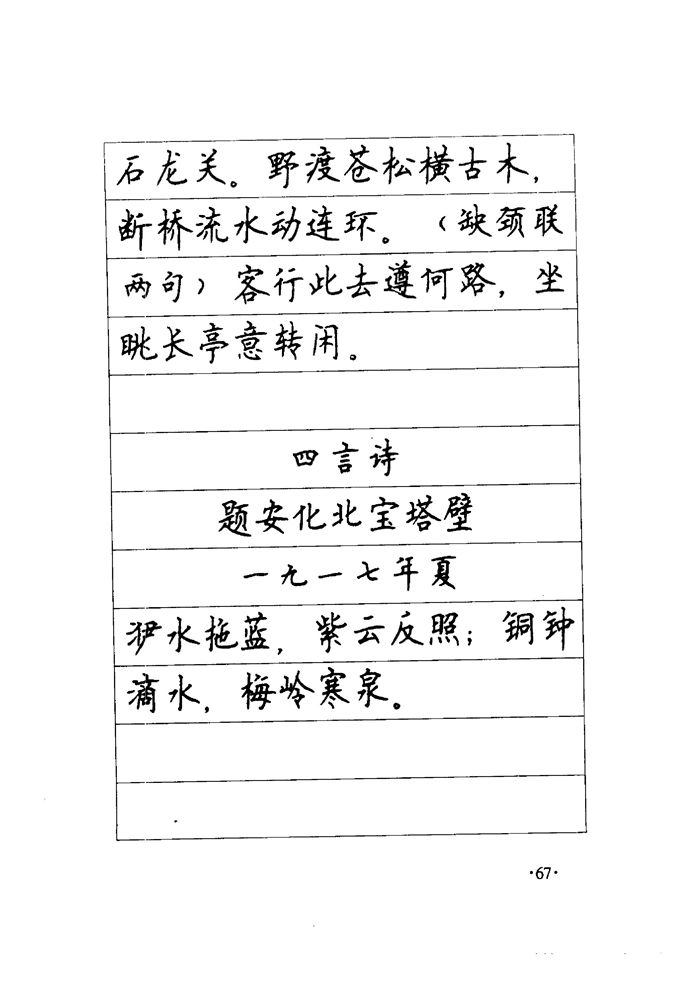 石龙关。野渡苍松横古木，
断桥流水动连环。（缺颈联
两句）客行此去遵何路，坐
眺长亭意转闲。
四言诗
题安化北宝塔壁
一九一七年夏
洢水拖蓝，紫云反照；铜钟
滴水，梅岭寒泉。
·67·